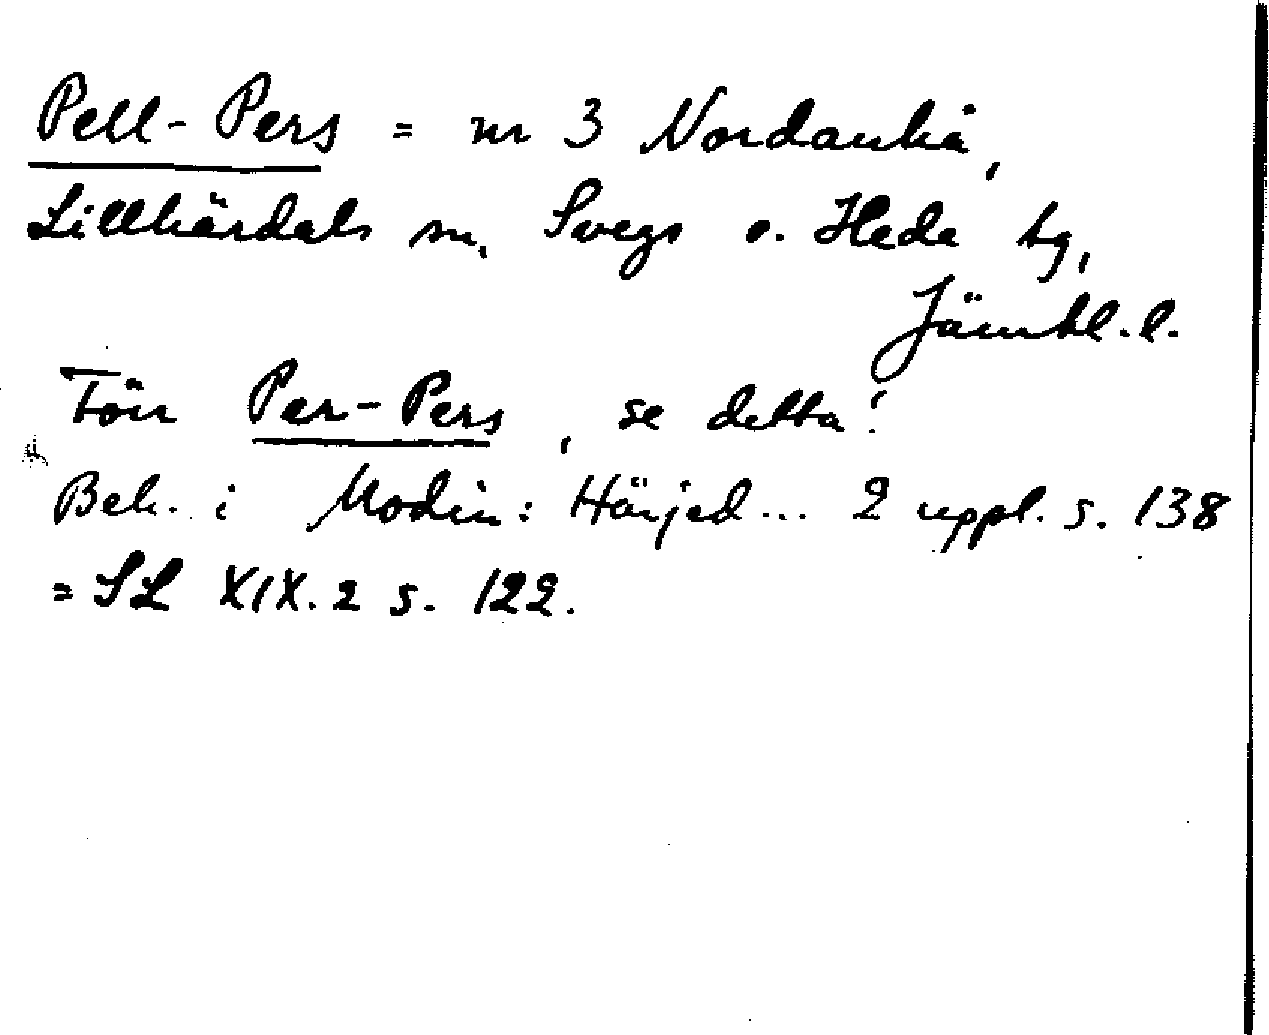 Pell-Pers = nr 3 Nordanhå,
Lillhärdals sn, Svegs o. Hede tg,
Jämtl. l.
Förr Per-Pers, se detta!
Beh. i Modin: Härjed... 2 uppl. s. 138
= SL XIX. 2 s. 122.